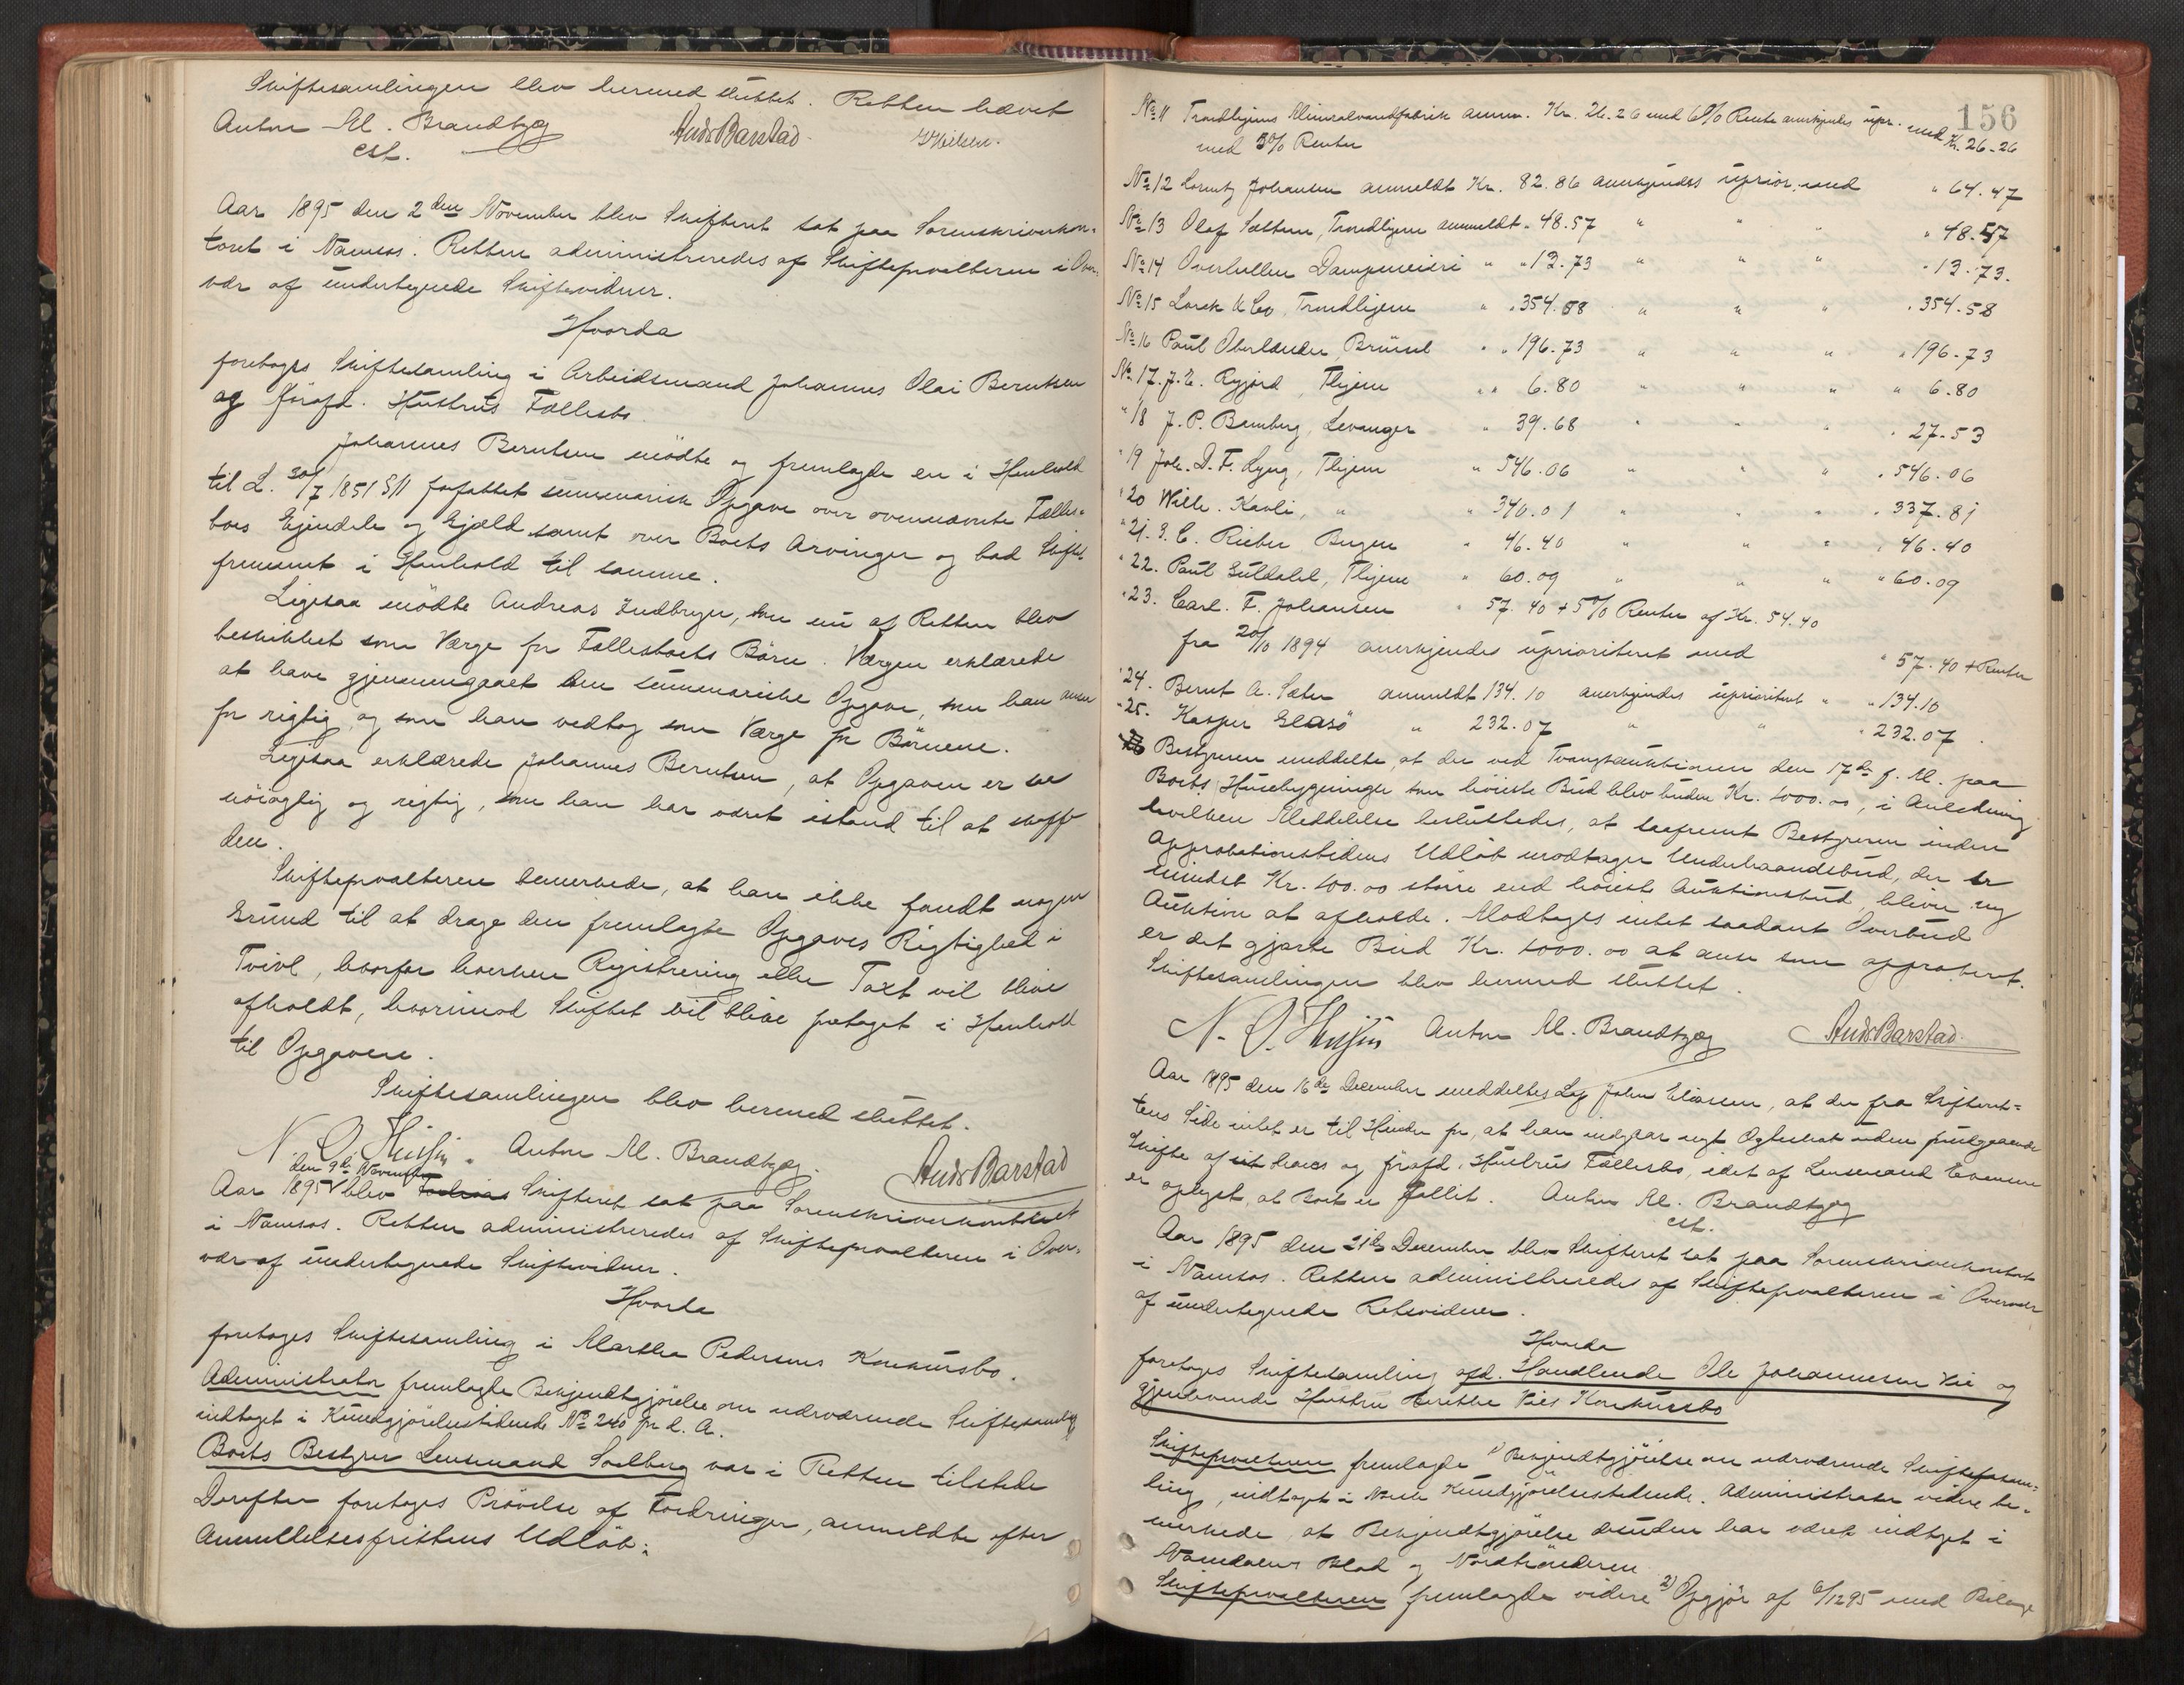 Skiftesamlingen blev hermed sluttet. Retten hævet
Anton M. Brandtzæg
cst.
Ands Barstad.
Aar 1895 den 2den November blev Skifteret sat paa Sorenskriverkon-
toret i Namsos. Retten administreredes af Skifteforvalteren i Over-
vær af undertegnede Skiftevidner.
Hvorda
foretoges Skiftesamling i Arbeidsmand Johannes Olai Berntsen
og forafd. Hustrus Fællesbo.
Johannes Berntsen mödte og fremlagde en i Henhold
til L. 30/7 1851 § 11 forfattet summarisk Opgave over ovennævnte Fælles-
boes Eiendele og Gjæld samt over Boets Arvinger og bad Skiftet
fremmet i Henhold til samme.
Ligesaa mödte Andreas Indbryn, som nu af Retten blev
beskikket som Værge for Fællesboets Börn. Værgen erklærede
at have gjennemgaaet den summariske Opgave, som han anser
for rigtig og som han vedtog som Værge for Börnene.
Ligesaa erklærede Johannes Berntsen, at Opgaven er saa
nöiagtig og rigtig, som han har været istand til at skaffe
den.
Skifteforvalteren bemerkede, at han ikke fandt nogen
Grund til at drage den fremlagte Opgaves Rigtighed i
Tvivl, hvorfor hverken Registrering eller Taxt vil blive
afholdt, hvorimod Skiftet vil blive foretaget i Henhold
til Opgaven.
Skiftesamlingen blev hermed sluttet.
Anton M. Brandtzæg.
Ands Barstad
den 9de November
Aar 1895 blev Skifteret sat paa Sorenskriverkontoret
i Namsos. Retten administreredes af Skifteforvalteren i Over-
vær af undertegnede Skiftevidner.
Hvorda
foretoges Skiftesamling i Martha Pedersens Konkursbo.
Administrator fremlagde Bekjendtgjörelse om nærværende Skiftesamling
indtaget i Kundgjörelsestidende No 240 for d. A.
Boets Bestyrer Lensmand Solberg var i Retten tilstede
Derefter foretoges Prövelse af Fordringer, anmeldte efter
Anmeldelsesfristens Udlöb:
156
No 11 Trondhjems Mineralvandfabrik anm. Kr. 26.26 med 6% Rente anerkjendes upr. med Kr. 26-26
med 5% Renter
No 12 Lorentz Johansen anmeldt Kr. 82.86 anerkjendes uprior. med " 64.47
No 13 Olaf Sættem, Trondhjem anmeldt " 48.57 " " " 48.57
No 14 Overhallen Dampmeieri " " 13.73 " " " " 13.73.
No 15 Lorck & Co, Trondhjem " " 354.58 " " " " 354.58
No 16 Paul Oberländer, Brünel " " 196.73 " " " " 196-73
No 17. J. E. Rygjord, Thjem " " 6.80 " " " " 6.80
" 18 J. P. Bamberg, Levanger " 39.68 " " " " 27-53
" 19 Joh. D. F. Lyng, Thjem " 546.06 " " " " 546.06
" 20 Wilh. Kavli, " " 340.01 " " " " 337.81
" 21. G. C. Rieber Bergen " 46.40 " " " " 46.40
" 22. Paul Guldahl, Thjem " 60.09 " " " " 60.09
" 23. Carl. F. Johansen " 57.40 + 5% Renter af Kr. 54.40
fra 20/10 1894 anerkjendes uprioriteret med " 57.40 + Renter
" 24. Bernt A. Sæter anmeldt 134.10 anerkjendes uprioriteret " " 134.10
" 25. Kasper Glasö " 232.07 " " " 232.07.
Bestyreren meddelte, at der ved Tvangsauktionen den 17de f. M. paa
Boets Husebygninger som höieste Bud blev buden Kr. 1000.00, i Anledning
hvilken Meddelelse besluttedes, at saafremt Bestyreren inden
Approbationstidens Udlöb modtager Underhaandsbud, der er
mindst Kr. 100.00 större end höieste Auktionsbud, bliver ny
Auktion at afholde. Modtages intet saadant Overbud
er det gjorte Bud Kr. 1000.00 at anse som approberet.
Skiftesamlingen blev hermed sluttet.
Anton M. Brandtzæg
Ands Barstad.
Aar 1895 den 16de December meddeltes Lig Johan Eliasen, at der fra Skifteret-
tens Side intet er til Hinder for, at han indgaar nyt Ægteskab uden forudgaaende
Skifte af sit havs og forafd. Hustrus Fællesbo, idet af Lensmand Evensen
er oplyst, at Boet er fallit. Anton M. Brandtzæg
cst.
Aar 1895 den 21de December blev Skifteret sat paa Sorenskriverkontoret
i Namsos. Retten administreredes af Skifteforvalteren i Overvær
af undertegnede Retsvidner.
Hvorda
foretoges Skiftesamling afd. Handlende Ole Johannesen Vie og
gjenlevende Hustru Berethe Vies Konkursbo
Skifteforvalteren fremlagde 1) Bekjendtgjörelse om nærværende Skiftesam-
ling, indtaget i Norsk Kundgjörelsestidende. Administrator videre be-
merkede, at Bekjendtgjörelse desuden har været indtaget i
Namdalens Blad og Nordtrönderen
Skifteforvalteren fremlagde videre 2) Opgjör af 6/12 95 med Bilage